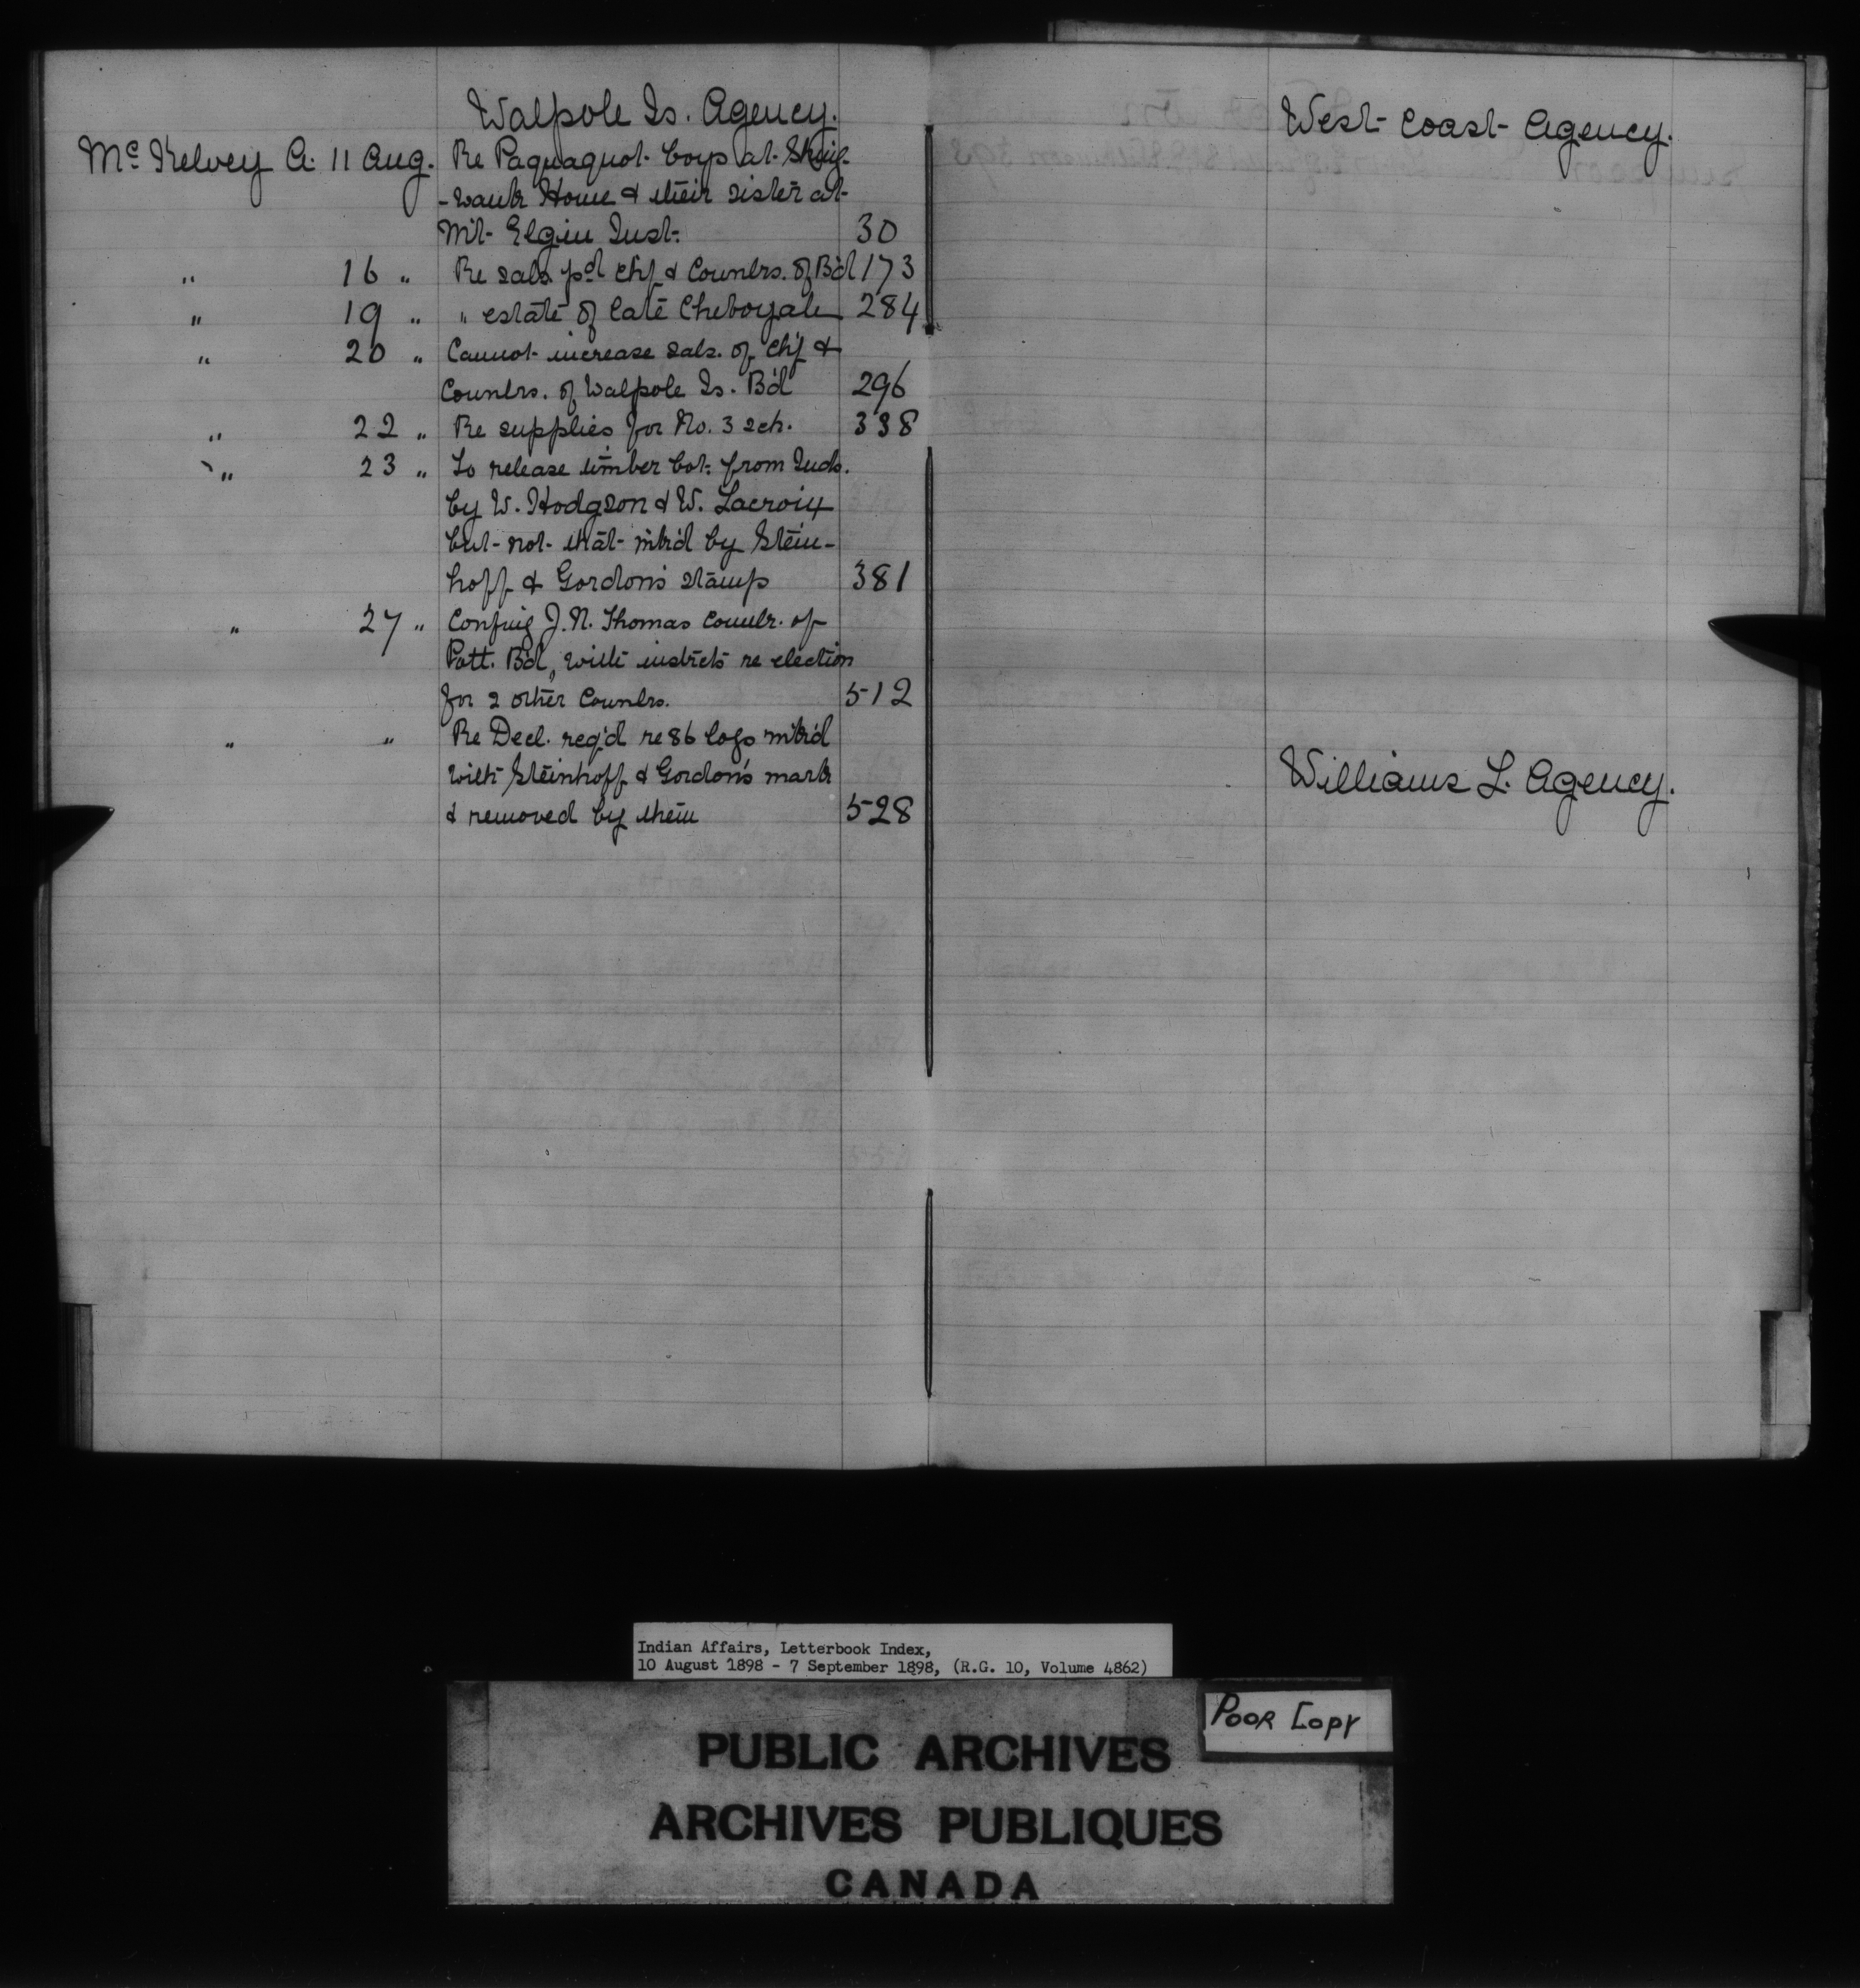 Walpole Is. Agency.
Mc Kelvey A. 11 Aug. Re Paquaquot boys at Shing-
-wauk Home & their sister at
Mt Elgin Inst. 30
" 16 " Re sals. pd chf & Counlrs. of B'd 173
" 19 " " estate of late Cheboyah 284
" 20 " Cannot increase sals. of chf &
Counlrs. of Walpole Is. B'd 296
" 22 " Re supplies for No. 3 sch. 338
" 23 " To release timber bot. from Inds.
by W. Hodgson & W. Lacroix
but not that mk'd by Stein-
hoff & Gordon's stamp 381
" 27 " Confng J. N. Thomas Counlr. of
Pott. B'd, with instrcts re election
for 2 other Counlrs. 512
" " Re Decl. req'd re 86 logs mk'd
with Steinhoff & Gordon's mark
& removed by them 528
West Coast Agency.
Williams L. Agency.
Indian Affairs, Letterbook Index,
10 August 1898 - 7 September 1898, (R.G. 10, Volume 4862)
Poor Copy
PUBLIC ARCHIVES
ARCHIVES PUBLIQUES
CANADA